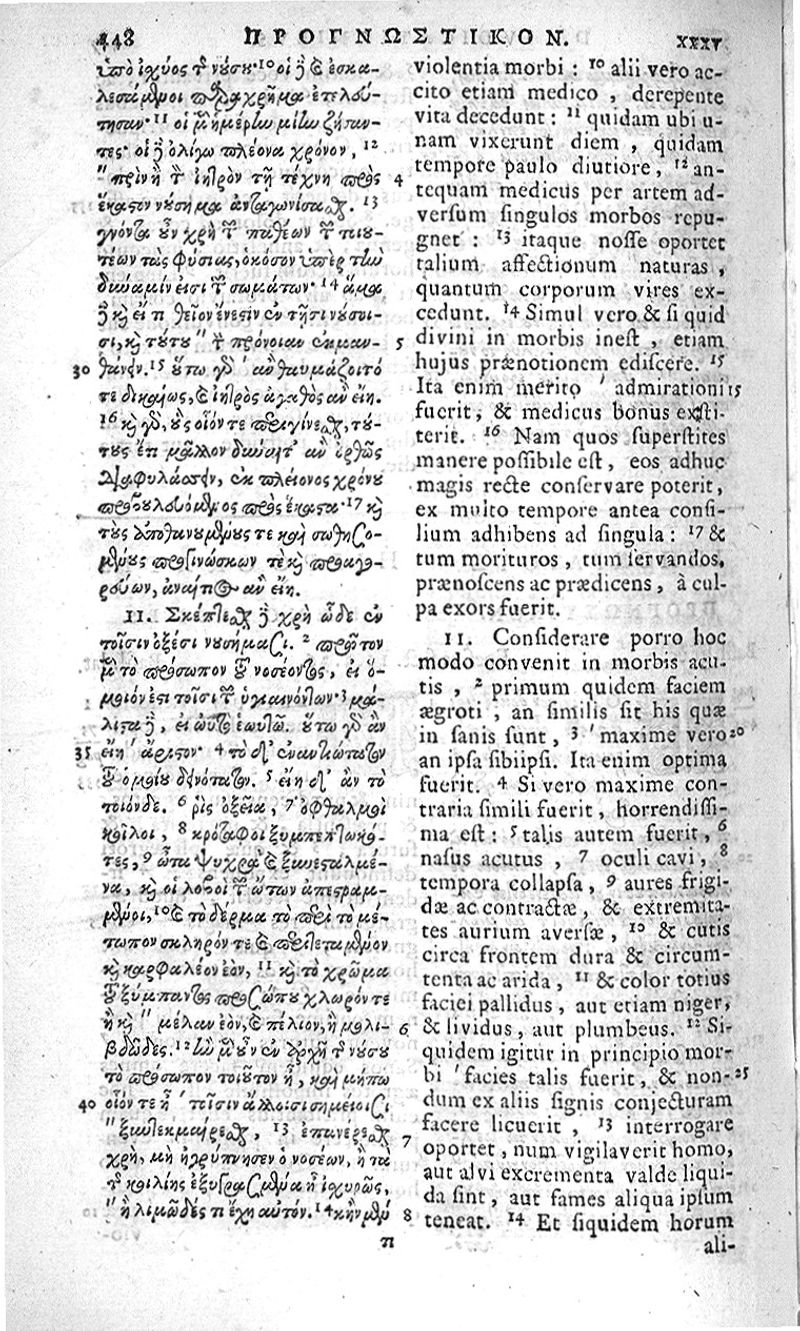 448 ΠΡΟΓΝΩΣΤΙΚΟΝ. XXXV
ὑπὸ ἰχύος τῆς νούσου· 10 οἱ δὲ καὶ ἐσκα-
λεσάμενοι παραχρῆμα ἐτελεύ-
τησαν· 11 οἱ μὲν ἡμέρην μίην ζήσαν-
τες· οἱ δὲ ὀλίγῳ πλέονα χρόνον, 12
" πρὶν ἢ τὸν ἰητρὸν τῇ τέχνῃ πρὸς
ἕκαστον νούσημα ἀνταγωνίσασθαι. 13
γνόντα οὖν χρὴ τῶν παθέων τῶν τοιου-
τέων τὰς φύσιας, ὁκόσον ὑπὲρ τὴν
δύναμίν εἰσι τῶν σωμάτων· 14 ἅμα
δὲ καὶ εἴ τι θεῖον ἔνεστιν ἐν τῇσι νούσοι-
σι, καὶ τούτου " τὴν πρόνοιαν ἐκμαν-
30 θάνειν. 15 οὕτω γὰρ ' ἂν θαυμάζοιτό
τε δικαίως, καὶ ἰητρὸς ἀγαθὸς ἂν εἴη.
16 καὶ γὰρ, οὓς οἷόν τε περιγίνεσθαι, τού-
τους ἔτι μᾶλλον δύναιτ' ἂν ὀρθῶς
διαφυλάσσειν, ἐκ πλείονος χρόνου
προβουλευόμενος πρὸς ἕκαστα· 17 καὶ
τοὺς ἀποθανουμένους τε καὶ σωθησο-
μένους προγινώσκων τε καὶ προαγο-
ρεύων, ἀναίτιος ἂν εἴη.
11. Σκέπτεσθαι δὲ χρὴ ὧδε ἐν
τοῖσιν ὀξέσι νουσήμασι. 2 πρῶτον
μὲν τὸ πρόσωπον τοῦ νοσέοντος, εἰ ὅ-
μοιόν ἐστι τοῖσι τῶν ὑγιαινόντων· 3 μά-
λιστα δὲ, εἰ αὐτὸ ἑωυτῷ. οὕτω γὰρ ἂν
35 εἴη ' ἄριστον· 4 τὸ δ' ἐναντιώτατον
τοῦ ὁμοίου δεινότατον. 5 εἴη δ' ἂν τὸ
τοιόνδε. 6 ῥὶς ὀξεῖα, 7 ὀφθαλμοὶ
κοῖλοι, 8 κρόταφοι ξυμπεπτωκό-
τες, 9 ὦτα ψυχρὰ καὶ ξυνεσταλμέ-
να, καὶ οἱ λοβοὶ τῶν ὤτων ἀπεστραμ-
μένοι, 10 καὶ τὸ δέρμα τὸ περὶ τὸ μέ-
τωπον σκληρόν τε καὶ περιτεταμένον
καὶ καρφαλέον ἐὸν, 11 καὶ τὸ χρῶμα
τοῦ ξύμπαντος προσώπου χλωρόν τε
ἢ καὶ " μέλαν ἐὸν, καὶ πέλιον, ἢ μολι-
βδῶδες. 12 ἢν μὲν οὖν ἐν ἀρχῇ τῆς νούσου
τὸ πρόσωπον τοιοῦτον ᾖ, καὶ μήπω
40 οἷόν τε ᾖ ' τοῖσιν ἄλλοισι σημείοισι
" ξυντεκμαίρεσθαι, 13 ἐπανέρεσθαι
χρὴ, μὴ ἠγρύπνησεν ὁ νοσέων, ἢ τὰ
τῆς κοιλίης ἐξυγρασμένα ᾖ ἰσχυρῶς,
" ἢ λιμῶδές τι ἔχῃ αὐτόν. 14 κἢν μέν
π
violentia morbi : 10 alii vero ac-
cito etiam medico , derepente
vita decedunt : 11 quidam ubi u-
nam vixerunt diem , quidam
tempore paulo diutiore, 12 an-
4 tequam medicus per artem ad-
versum singulos morbos repu-
gnet : 13 itaque nosse oportet
talium affectionum naturas ,
quantum corporum vires ex-
cedunt. 14 Simul vero & si quid
5 divini in morbis inest , etiam
hujus prænotionem ediscere. 15
Ita enim merito ' admirationi 15
fuerit, & medicus bonus exsti-
terit. 16 Nam quos superstites
manere possibile est , eos adhuc
magis recte conservare poterit,
ex multo tempore antea consi-
lium adhibens ad singula : 17 &
tum morituros , tum servandos,
prænoscens ac prædicens , à cul-
pa exors fuerit.
11. Considerare porro hoc
modo convenit in morbis acu-
tis , 2 primum quidem faciem
ægroti , an similis sit his quæ
in sanis sunt, 3 ' maxime vero 20
an ipsa sibiipsi. Ita enim optima
fuerit. 4 Si vero maxime con-
traria simili fuerit, horrendissi-
ma est : 5 talis autem fuerit, 6
nasus acutus , 7 oculi cavi, 8
tempora collapsa, 9 aures frigi-
dæ ac contractæ, & extremita-
tes aurium aversæ, 10 & cutis
circa frontem dura & circum-
tenta ac arida , 11 & color totius
faciei pallidus , aut etiam niger,
6 & lividus, aut plumbeus. 12 Si-
quidem igitur in principio mor-
bi ' facies talis fuerit, & non- 25
dum ex aliis signis conjecturam
facere licuerit , 13 interrogare
7 oportet, num vigilaverit homo,
aut alvi excrementa valde liqui-
da sint, aut fames aliqua ipsum
8 teneat. 14 Et siquidem horum
ali-